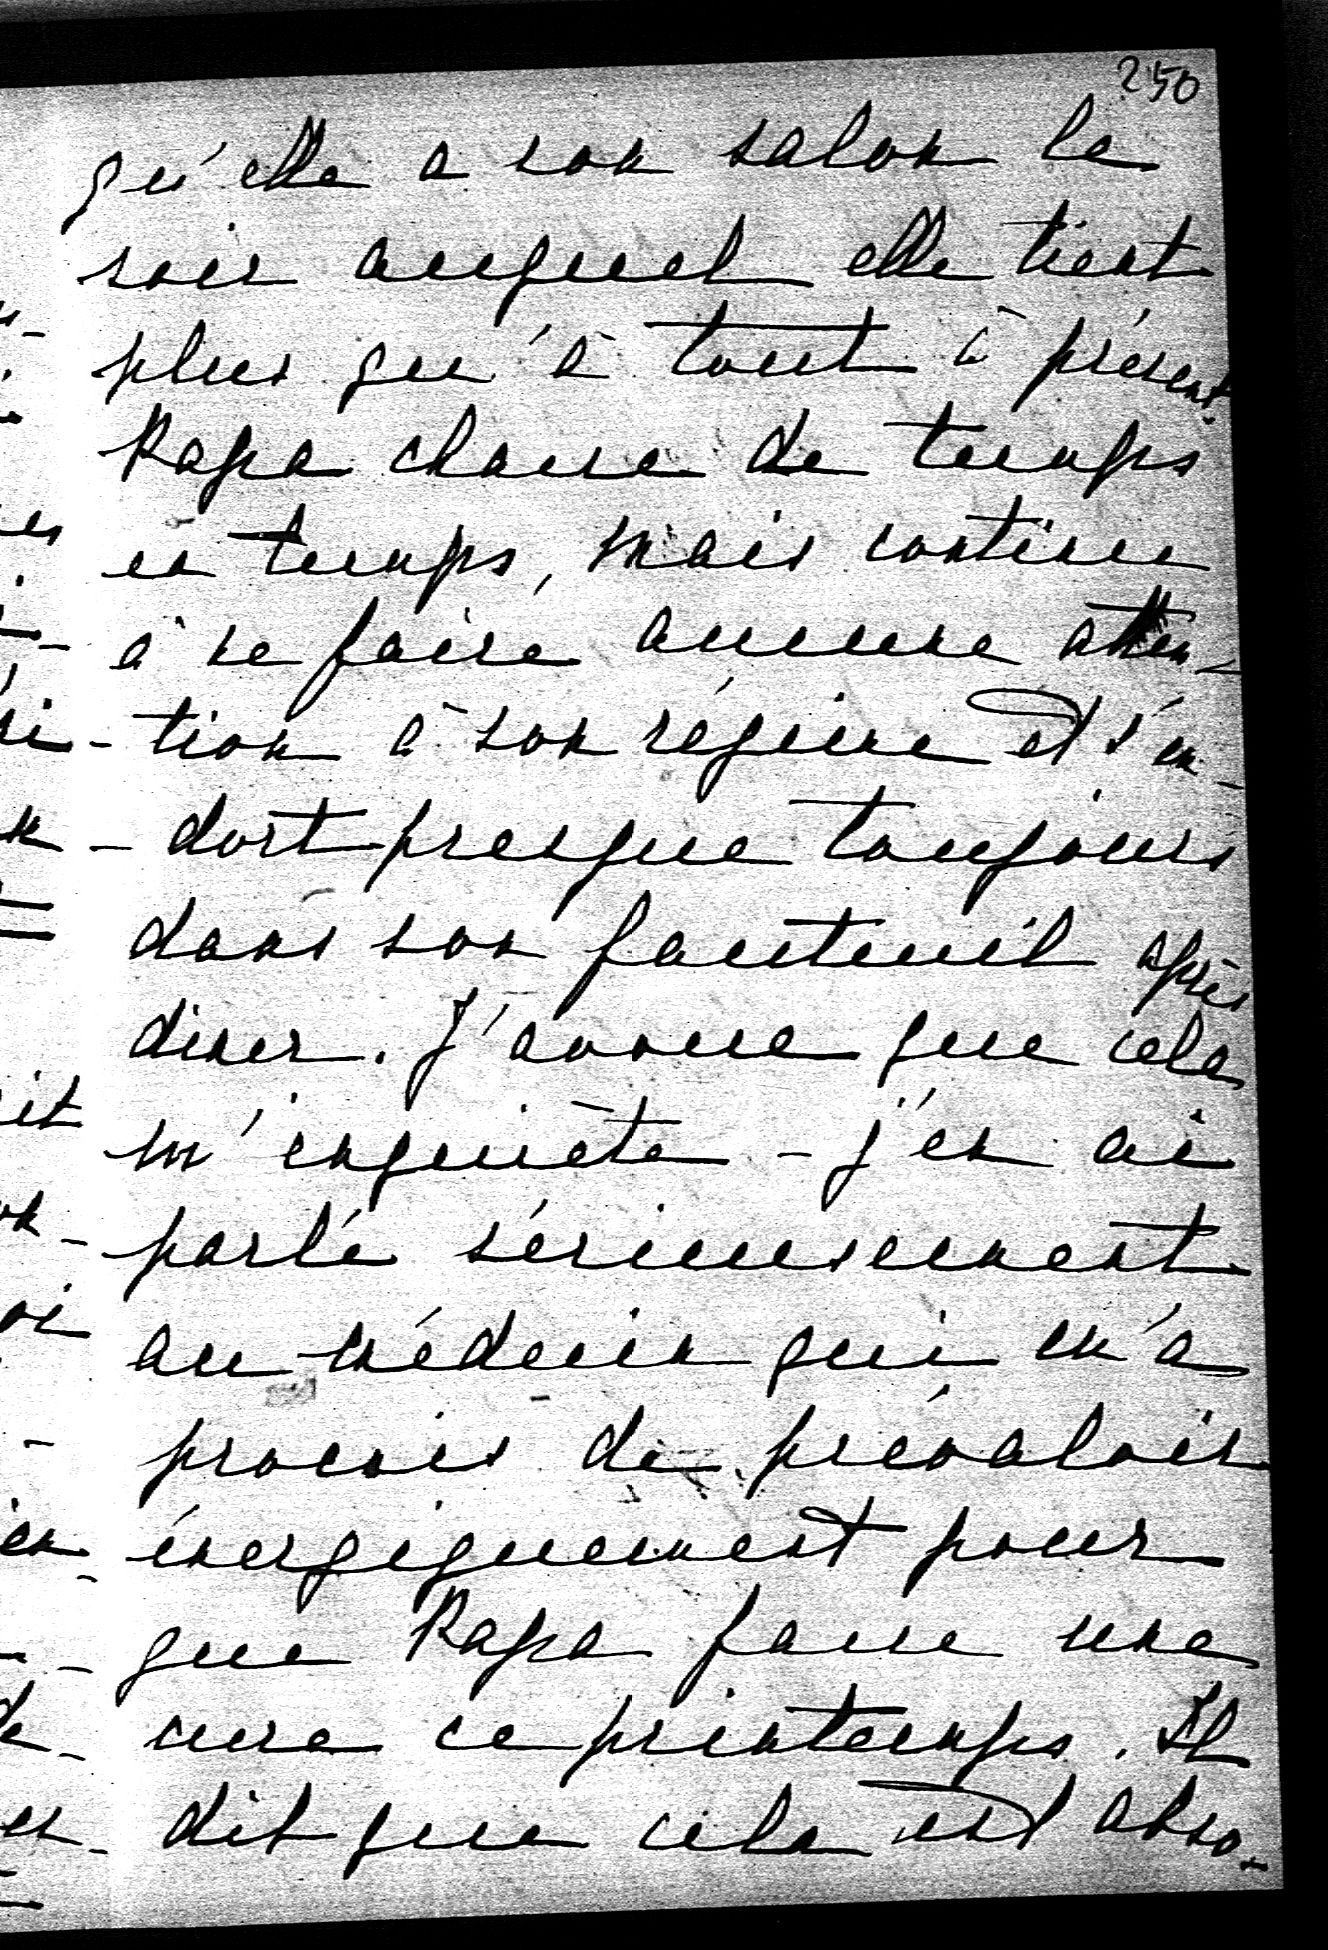 250
qu'elle a son salon le
soir auquel elle tient
plus qu'à tout à présent.
Papa chasse de temps
en temps, mais continue
à ne faire aucune atten-
-tion à son régime et s'en-
-dort presque toujours
dans son fauteuil après
diner. J'avoue que cela
m'inquiète - j'en ai
parlé sérieusement
au médecin qui m'a
promis de prévaloir
énergiquement pour
que Papa fasse une
cure ce printemps. Il
dit que cela est abso-